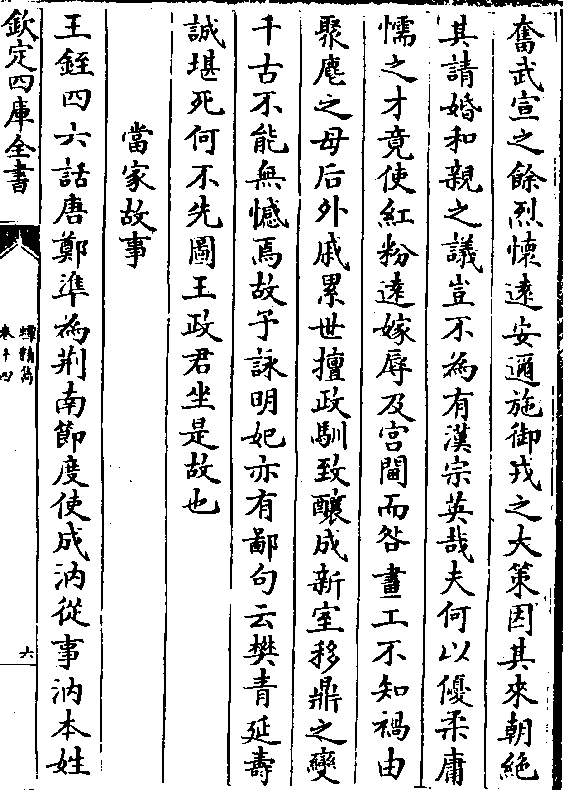 奮武宣之餘烈懷逺安邇施御戎之大策因其來朝絶
其請婚和親之議豈不為有漢宗英哉夫何以優柔庸
懦之才竟使紅粉逺嫁辱及宫閫而咎畫工不知禍由
聚麀之母后外戚累世擅政馴致釀成新室移鼎之變
千古不能無憾焉故予詠明妃亦有鄙句云樊青延壽
誠堪死何不先圖王政君坐是故也
當家故事
王銍四六話唐鄭準為荆南節度使成汭從事汭本姓
欽定四庫全書
卷十四
六